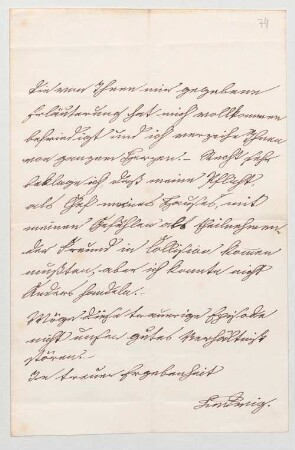 74
Die von Ihnen mir gegebene
Erläuterung hat mich vollkommen
befriedigt und ich verzeihe Ihnen
von ganzem Herzen! – Recht sehr
beklage ich, daß meine Pflicht,
als Chef meines Hauses, mit
meinen Gefühlen als theilnehmen-
der Freund in Collision kommen
mußten, aber ich konnte nicht
anders handeln. –
Möge diese traurige Episode
nicht unser gutes Verhältniß
stören! –
In treuer Ergebenheit
Ludwig.